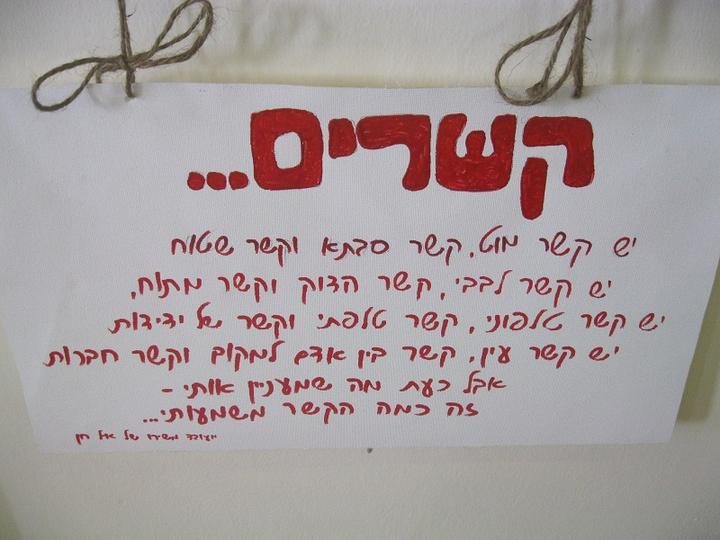 קשרים...
יש קשר מוט, קשר סבתא וקשר שטוח
יש קשר לבבי, קשר הדוק וקשר מתוח,
יש קשר טלפוני, קשר טלפתי וקשר של ידידות
יש קשר עין, קשר בין אדם למקום וקשר חברות
אבל כעת מה שמעניין אותי -
זה כמה הקשר משמעותי...
מעובד משירו של חן